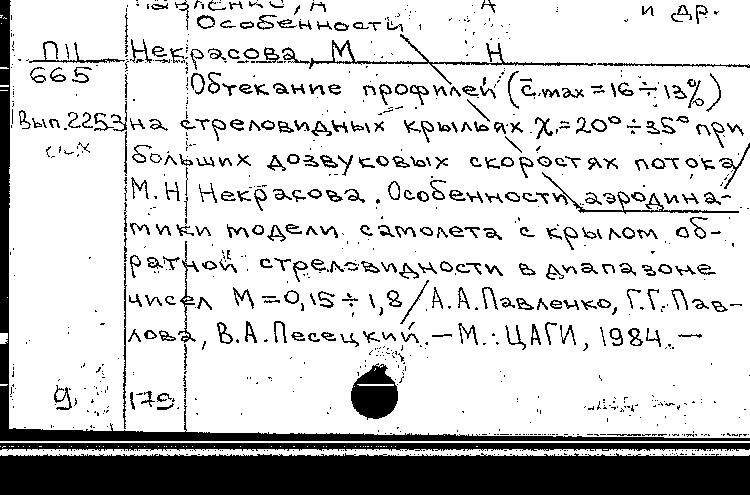 Павленко, А А и др.
Особенности
П11 Некрасова, М Н
665 Обтекание профилей (c̄max = 16 ÷ 13%)
Вып.2253 на стреловидных крыльях χ = 20° ÷ 35° при
больших дозвуковых скоростях потока /
М.Н Некрасова. Особенности аэродина-
мики модели самолета с крылом об-
ратной стреловидности в диапазоне
чисел М = 0,15 ÷ 1,8 / А.А.Павленко, Г.Г.Пав-
лова, В.А.Песецкий. — М.: ЦАГИ, 1984. —
9 179